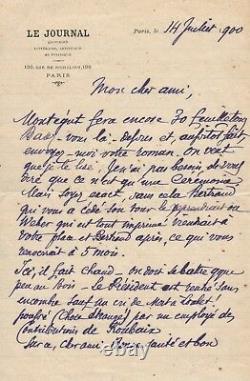 LE JOURNAL
QUOTIDIEN
LITTÉRAIRE, ARTISTIQUE
ET POLITIQUE
PARIS
Paris, le 14 Juillet 900
Mon cher ami,
Montégut fera encore 30 feuilletons
vous là. Depuis et aussitôt fait,
envoyez-moi votre roman. On veut
que je le lise. Je n'ai pas besoin de vous
dire que ce n'est qu'une Cérémonie
Mais soyez exact sans cela Bertrand
qui vous a cédé son tour le reprendrait ou
Weber qui est tout imprimé viendrait à
votre place et Bertrand après, ce qui vous
renverrait à 5 mois.
Ici, il fait chaud - on doit se battre
peu au Bois - Le Président est rentré sans
encombre sauf un cri de
poussé (chose étrange) par un employé des
Contributions de Roubaix
bonne santé et bon
© ebayphoto withXu